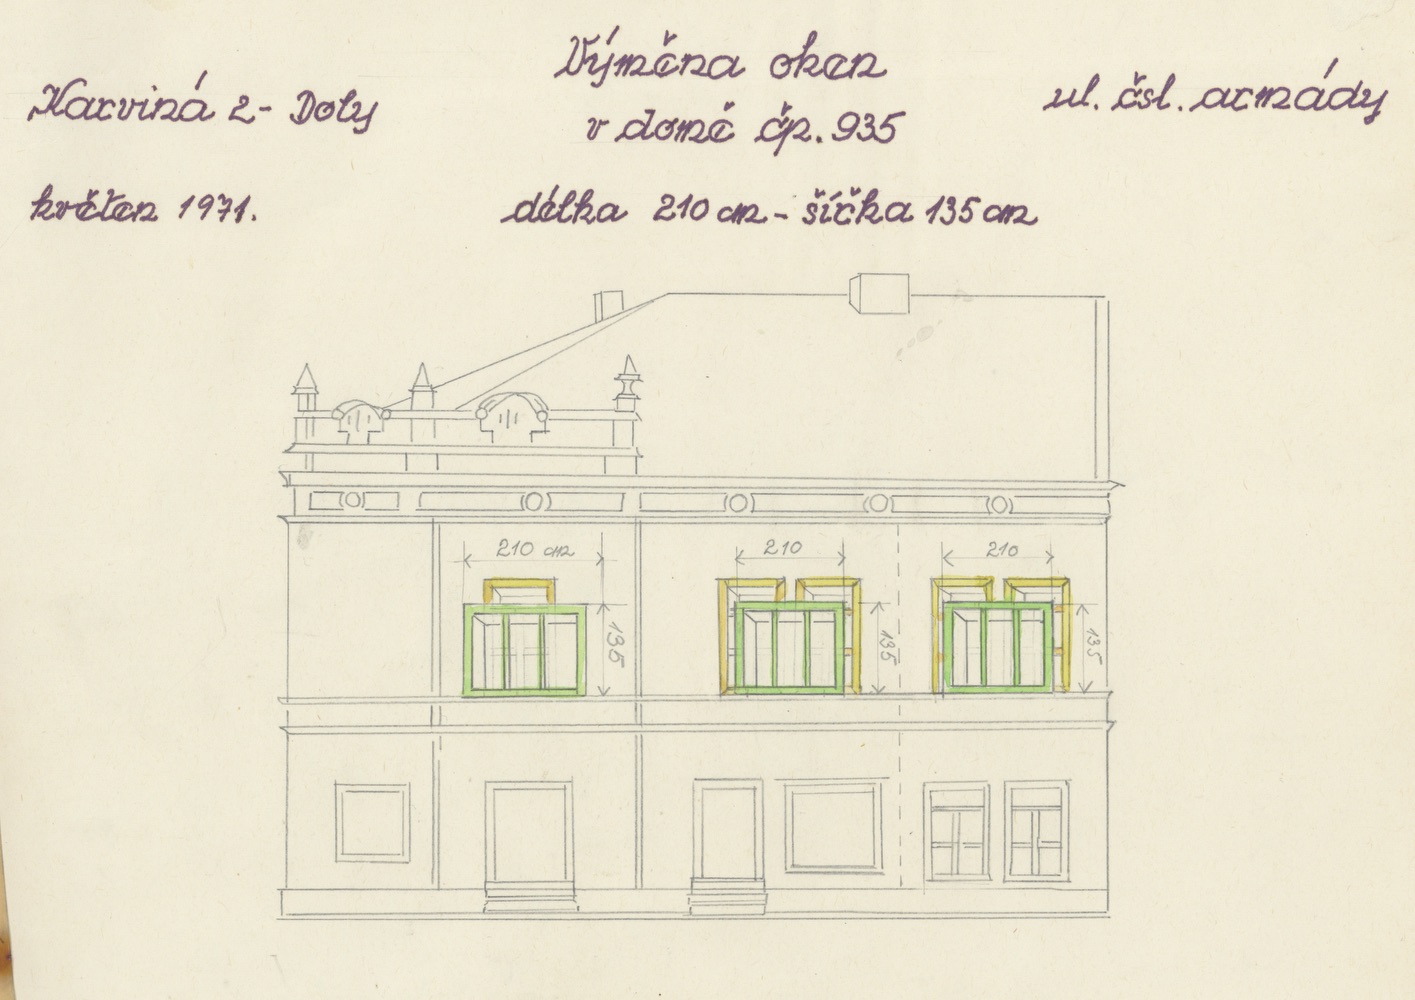 Výměna oken
Karviná 2- Doly
ul. čsl. armády
v domě čp. 935
květen 1971.
délka 210 cm - šířka 135 cm
210 cm
210
210
135
135
135